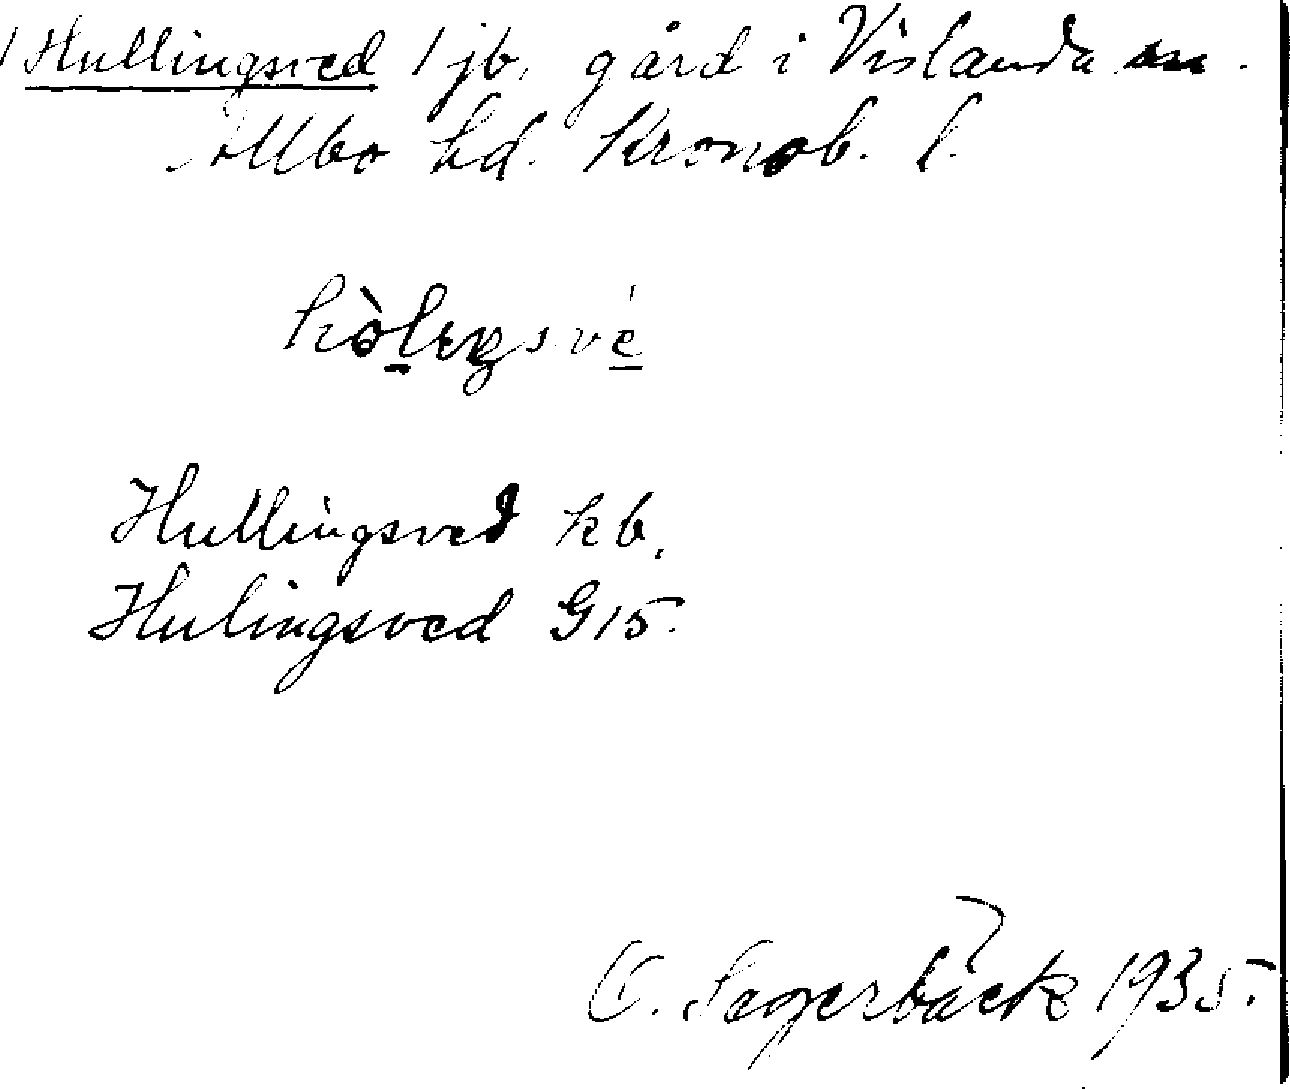 Hullingsved 1 jb, gård i Vislanda sn.
Allbo hd. Kronob. l.
hòleŋsvé
Hullingsved kb.
Hulingsved G15.
1935.